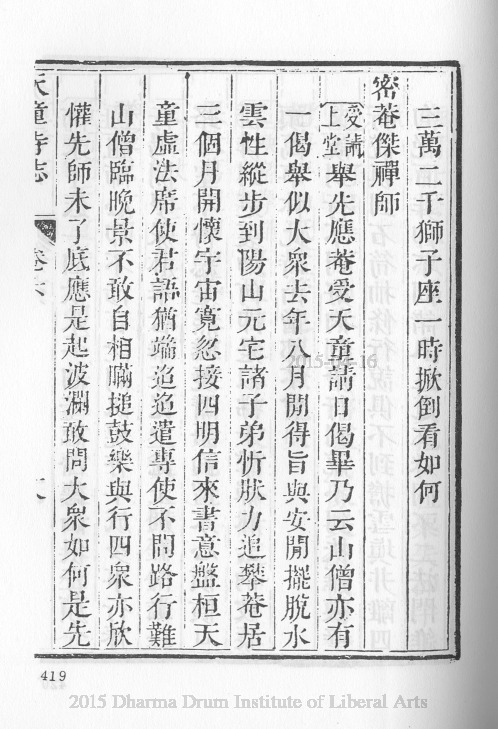 三萬二千獅子座一時掀倒看如何
密菴傑禪師
受請上堂舉先應菴受天童請日偈畢乃云山僧亦有
一偈舉似大衆去年八月開得旨與安閒擺脫水
雲性縱步到陽山元宅諸子弟忻狀力追攀菴居
三個月開懷宇宙寬忽接四明信來書意盤桓天
童虛法席使君語猶端迢迢遣專使不問路行難
山僧臨晚景不敢自相瞞搥鼓樂與行四衆亦欣
懽先師未了底應是起波瀾敢問大衆如何是先
天童寺志
卷六
2015-06-16
419
2015 Dharma Drum Institute of Liberal Arts